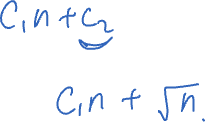 C₁n + C₂
C₁n + √n.